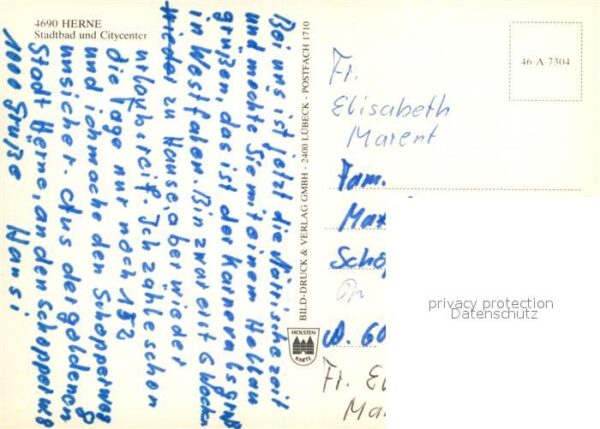 4690 HERNE
Stadtbad und Citycenter
Bei uns ist jetzt die Närrische zeit
und möchte Sie mit einem Hellau
grüßen, das ist der Karnevalsgruß
in Westfalen. Bin zwar erst 6 Wochen
wieder zu Hause, aber wieder
urlaubsreif. Ich zähle schon
die Tage nur noch 152
und ich mache den Schopperweg
unsicher. Aus der goldenen
Stadt Herne, an den schopperweg
1000 Grüße Hans
BILD-DRUCK & VERLAG GMBH - 2400 LÜBECK - POSTFACH 1710
HOLSTEN
KARTE
46 A 7304
Fr.
Elisabeth
Marent
Fam.
Max
Schop
A. 60
Fr. El
Ma
privacy protection
Datenschutz